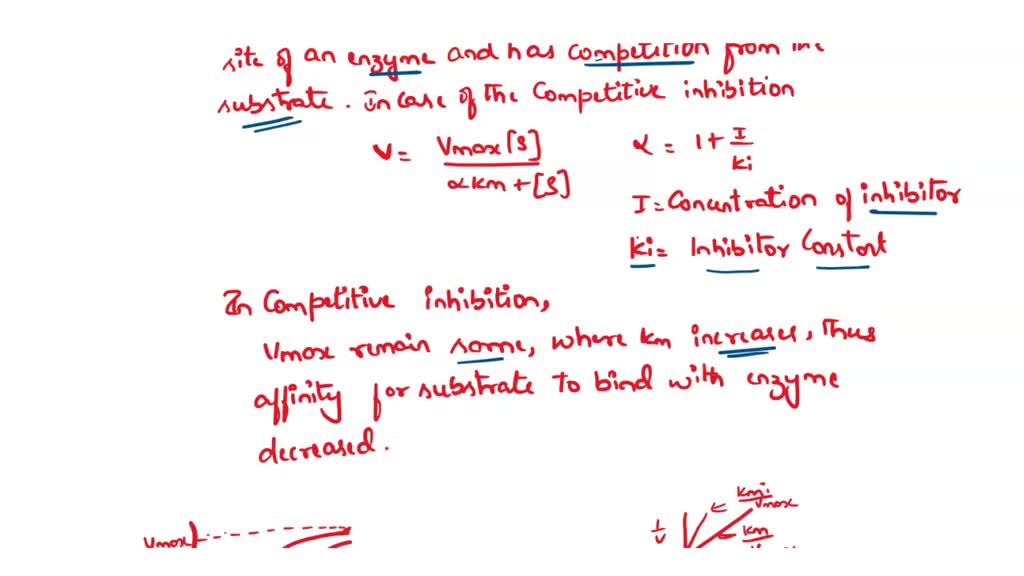 site of an enzyme and has competition from the
substrate. In case of the Competitive inhibition
V = Vmax[S] / αkm + [S]
α = 1 + I / ki
I = Concentration of inhibitor
ki = Inhibitor Constant
In Competitive inhibition,
Vmax remain same, where km increases, Thus
affinity for substrate to bind with enzyme
decreased.
kmi / Vmax
1/v
km
Vmax